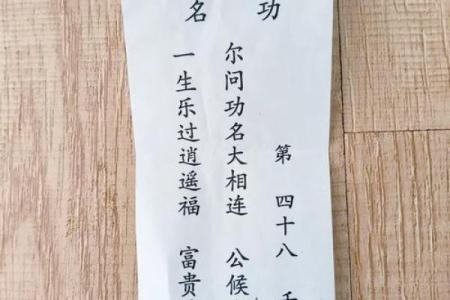 功名
第四十八
尔问功名大相连 公候
一生乐过逍遥福 富贵